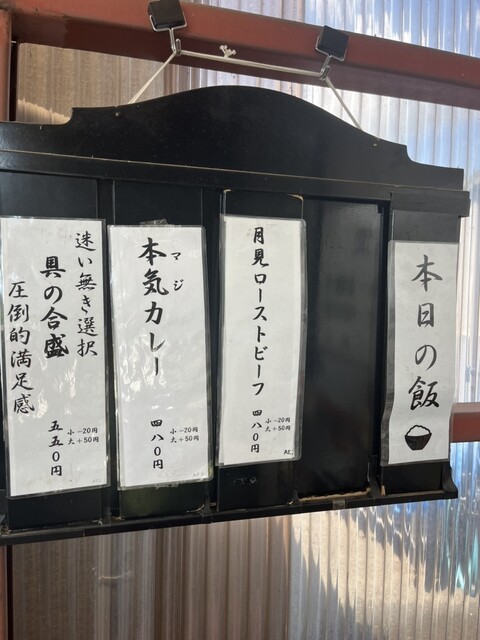 本日の飯
月見ローストビーフ
四八〇円
小-20円
大+50円
本気カレー
マジ
四八〇円
小-20円
大+50円
迷い無き選択
具の合盛
圧倒的満足感
五五〇円
小-20円
大+50円